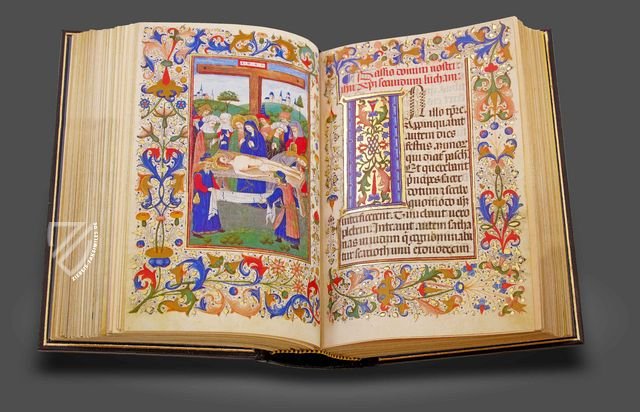 INRI
Passio domini nostri
secundum lucham:
In illo tp̄re.
Appinquabat
autem dies
festus
qui dicit pasch
Et querebant
principes sacer
dotum et scribe
quomodo
interficerent. Timebant vero
plebem. Intravit autem satha
nas in iudam q̄ cognominaba
tur scarioth unū ex duodecim
ZIEREIS-FACSIMILES.DE